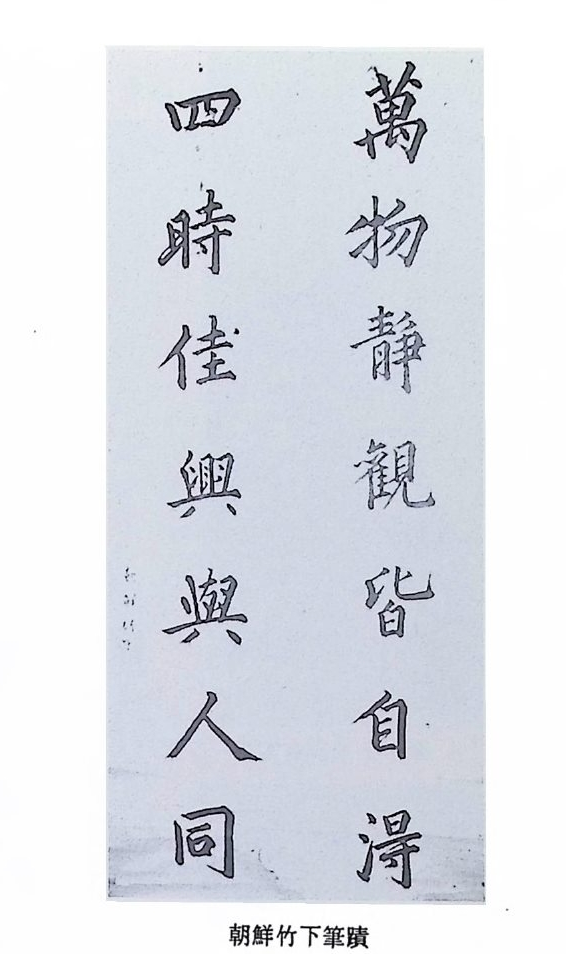 萬物靜觀皆自淂
四時佳興與人同
朝鮮竹下
朝鮮竹下筆蹟